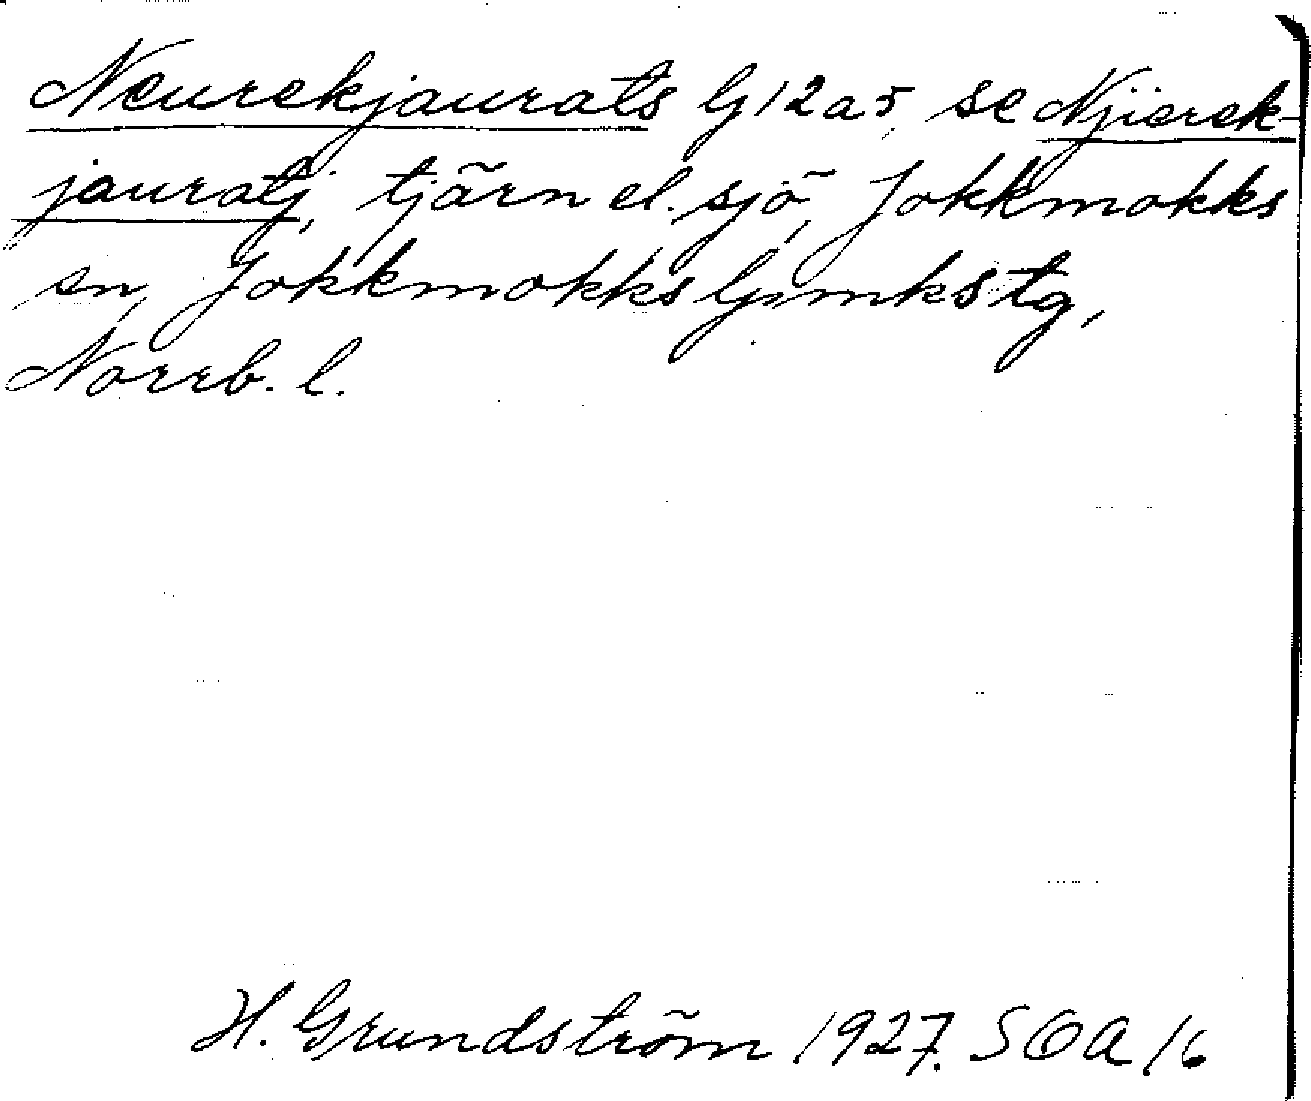 Neurekjaurats lj 12 a 5, se Njierek-
jauratj, tjärn el. sjö, Jokkmokks
sn, Jokkmokks lpmkstg,
Norrb. l.
H. Grundström 1927. SOA 16